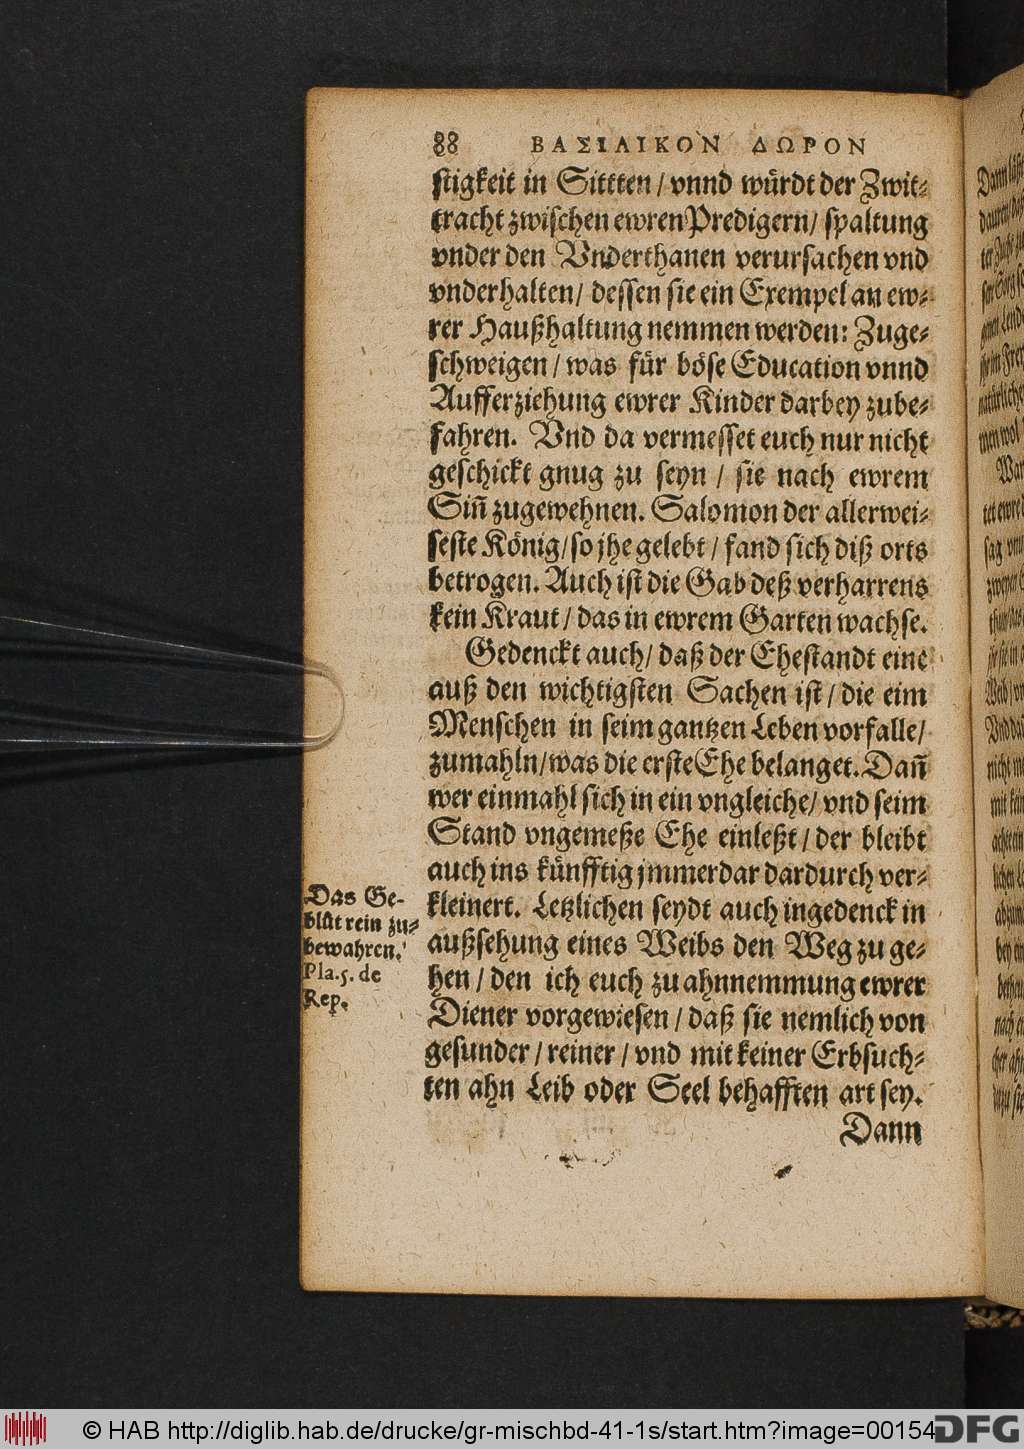 88 ΒΑΣΙΛΙΚΟΝ ΔΩΡΟΝ
stigkeit in Sittten / vnnd würdt der Zwit-
tracht zwischen ewren Predigern / spaltung
vnder den Vnderthanen verursachen vnd
vnderhalten / dessen sie ein Exempel an ew-
rer Haußhaltung nemmen werden: Zuge-
schweigen / was für böse Education vnnd
Aufferziehung ewrer Kinder darbey zube-
fahren. Vnd da vermesset euch nur nicht
geschickt gnug zu seyn / sie nach ewrem
Siñ zugewehnen. Salomon der allerwei-
seste König / so jhe gelebt / fand sich diß orts
betrogen. Auch ist die Gab deß verharrens
kein Kraut / das in ewrem Garten wachse.
Gedenckt auch / daß der Ehestandt eine
auß den wichtigsten Sachen ist / die eim
Menschen in seim gantzen Leben vorfalle /
zumahln / was die erste Ehe belanget. Dañ
wer einmahl sich in ein vngleiche / vnd seim
Stand vngemeße Ehe einleßt / der bleibt
auch ins künfftig jmmerdar dardurch ver-
kleinert. Letzlichen seydt auch ingedenck in
außsehung eines Weibs den Weg zu ge-
hen / den ich euch zu ahnnemmung ewrer
Diener vorgewiesen / daß sie nemlich von
gesunder / reiner / vnd mit keiner Erbsuch-
ten ahn Leib oder Seel behafften art sey.
Dann
Das Ge-
blüt rein zu-
bewahren.
Pla. 5. de
Rep.
© HAB http://diglib.hab.de/drucke/gr-mischbd-41-1s/start.htm?image=00154
DFG